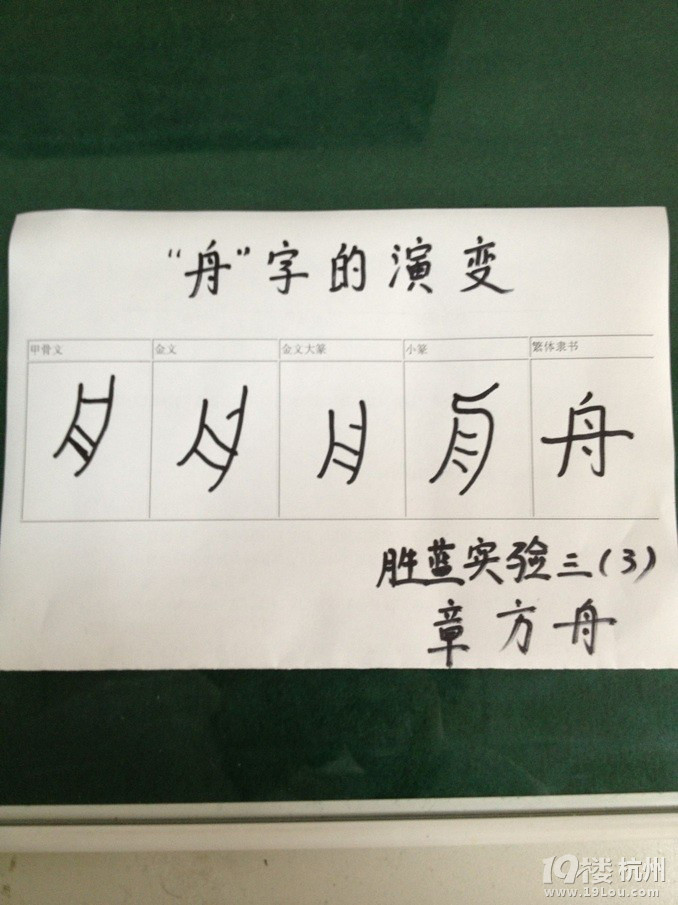 “舟”字的演变
甲骨文 金文 金文大篆 小篆 繁体隶书
舟
胜蓝实验三(3)
章方舟
19楼 杭州
www.19lou.com